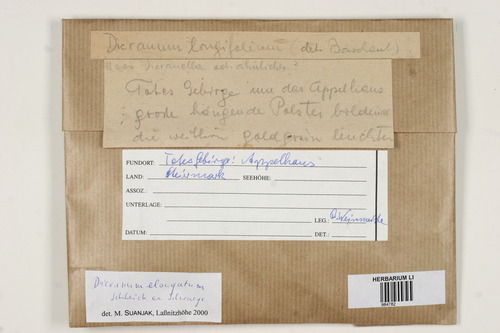 Dicranum longifolium (det. Baschant)
Totes Gebirge um das Appelhaus
große hängende Polster bildend
die weithin goldgrün leuchten
FUNDORT: Totes Gebirge: Appelhaus
LAND: Steiermark SEEHÖHE:
ASSOZ.
UNTERLAGE:
LEG.:
DATUM: DET.:
Dicranum elongatum
Schleich. ex Schwaegr.
det. M. SUANJAK, Laßnitzhöhe 2000
HERBARIUM LI
984782